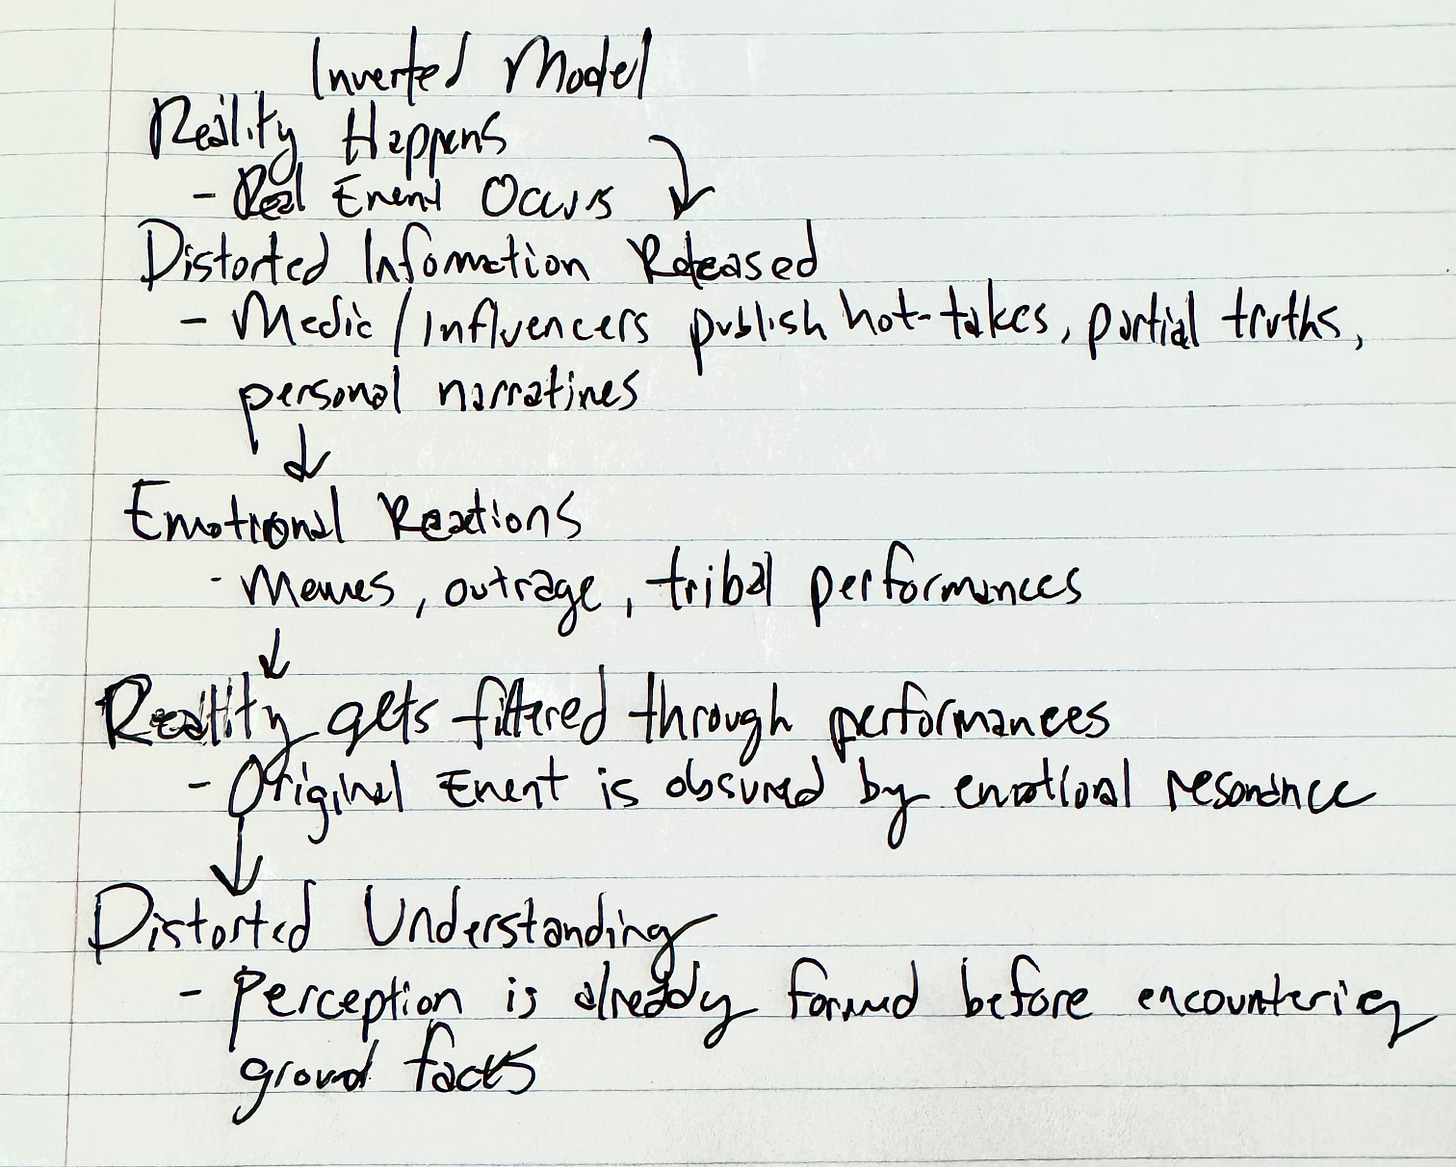 Inverted Model
Reality Happens
- Real Event Occurs
Distorted Infomation Released
- Media / Influencers publish hot-takes, partial truths,
personal narratives
Emotional Reactions
- Memes, outrage, tribal performances
Reality gets filtered through performances
- Original Event is obsured by emotional resonance
Distorted Understanding
- Perception is already formed before encountering
ground facts